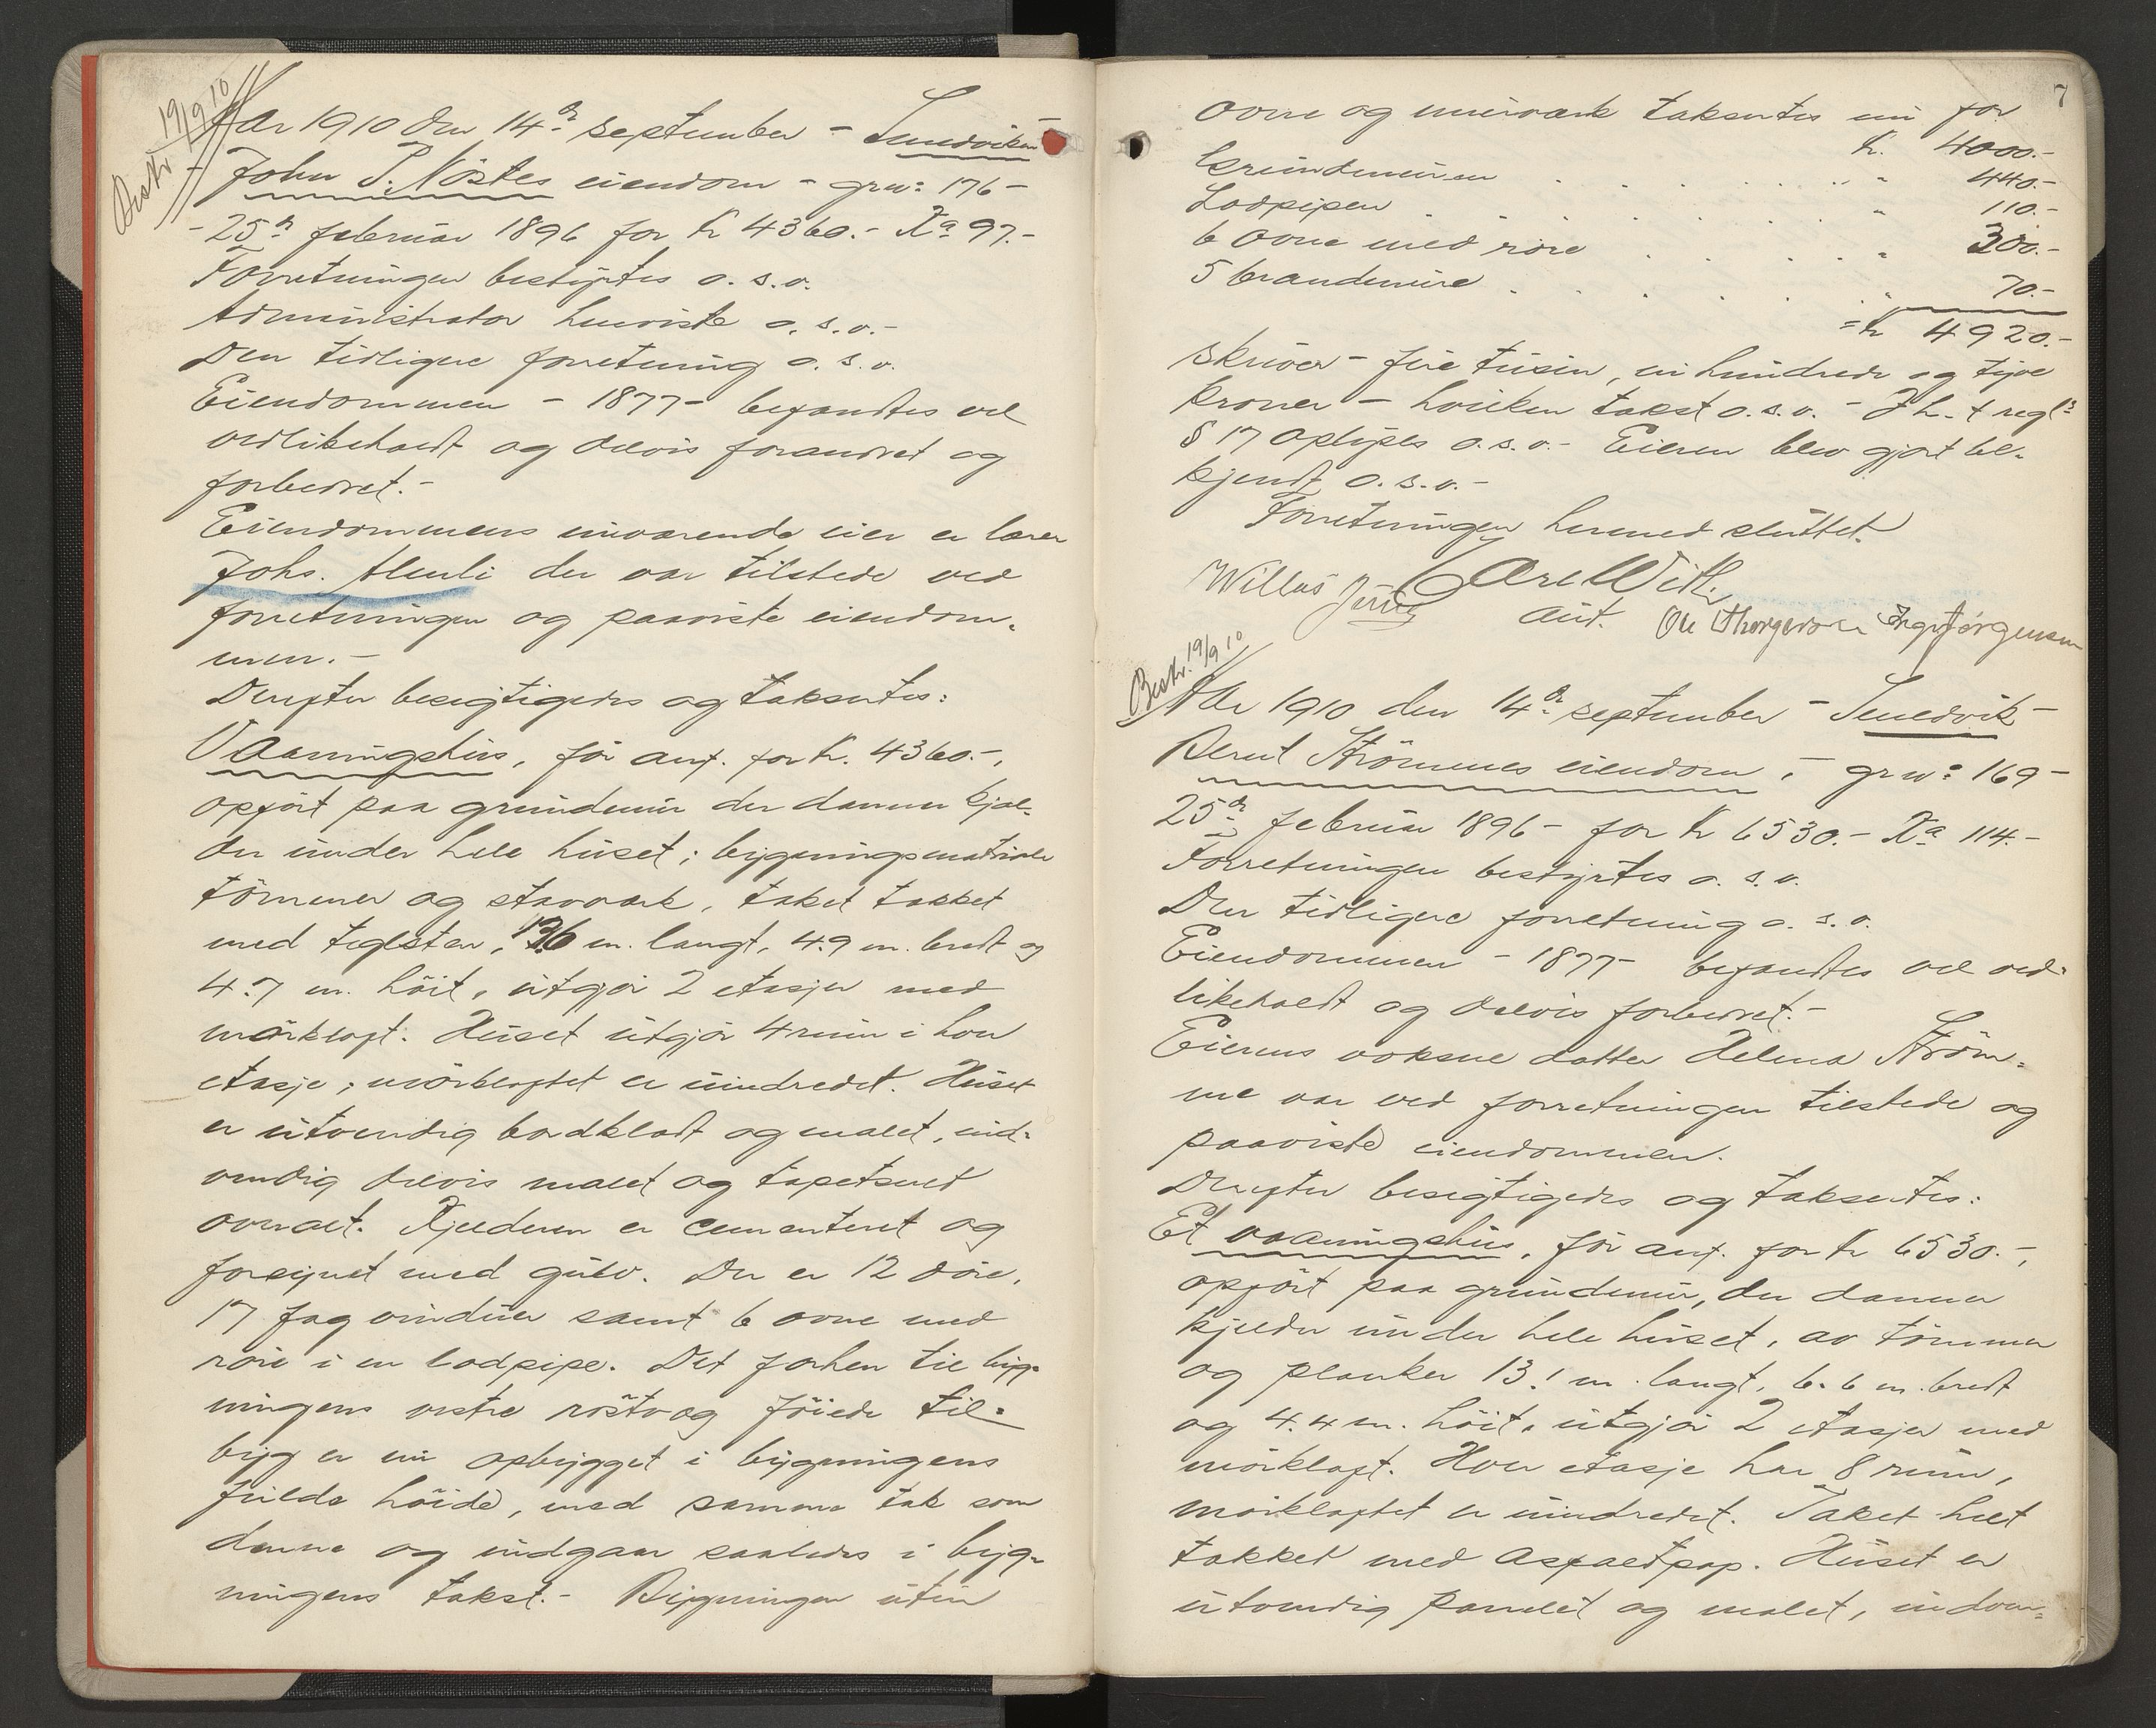 Bestr. 19/9 10
Aar 1910 den 14de september - Sandviken -
- John P. Nöstes eiendom - grn: 176 -
- 25de februar 1896 for Kr 4360.- Xa 97.-
Forretningen bestyrtes o. s. v.
Administrator henviste o. s. v.-
Den tidligere forretning o. s. v.
Eiendommen - 1877 - befandtes vel
vedlikeholdt og delvis forandret og
forbedret.-
Eiendommens nuværende eier er lærer
Johs. Alenli der var tilstede ved
forretningen og paaviste eiendom-
men.-
Derefter besigtigedes og taksertes:
Vaaningshus, før anf. for kr. 4360.-,
opført paa grundmur der danner kjæl-
der under hele huset; bygningsmateriale
tömmer og stavværk, taket tækket
med teglsten, 13.6 m. langt, 4.9 m. bredt og
4.7 m. höit, utgjør 2 etasjer med
mørkloft. Huset utgjör 4 rum i hver
etasje; mörkloftet er uindredet. Huset
er utvendig bordklædt og malet, ind-
vendig delvis malet og tapetseret
overalt. Kjelderen er cementeret og
forsynet med gulv. Der er 12 döre,
17 fag vinduer samt 6 ovne med
röre i en lodpipe. Det forhen til byg-
ningens vestre röstvæg föiede til-
byg er nu opbygget i bygningens
fulde höide, med samme tak som
denne og indgaar saaledes i byg-
ningens takst.- Bygningen uten
7
ovne og murværk taksertes nu for
kr. 4000.-
Grundmuren . . . . . " 440.-
Lodpipen . . . . . " 110.-
6 ovne med röre . . . . " 300.-
5 brandmure . . . . . " 70.-
= kr 4920.-
skriver - fire tusin, ni hundrede og tyve
kroner - hvilken takst o. s. v. - Jh. t regl's
§ 17 oplyses o. s. v.- Eieren blev gjort be-
kjendt o. s. v.-
Forretningen hermed sluttet.
Willas Jens Carl With
aut. Ole Thorgersen Ingv Jörgensen
Bestr. 19/9 10
Aar 1910 den 14de september - Sandvik -
Bernt Strömmes eiendom, - grn: 169 -
25de februar 1896 - for Kr 6530.- Xa 114.-
Forretningen bestyrtes o. s. v.
Den tidligere forretning o. s. v.
Eiendommen - 1877 - befandtes vel ved-
likeholdt og delvis forbedret.-
Eierens voksne datter Helena Ström-
me var ved forretningen tilstede og
paaviste eiendommen.
Derefter besigtigedes og taksertes:
Et vaaningshus, før anf. for kr 6530.-,
opført paa grundmur, der danner
kjelder under hele huset, av tömmer
og planker 13.1 m. langt, 6.6 m. bredt
og 4.4 m. höit, utgjör 2 etasjer med
mörkloft. Hver etasje har 8 rum,
mörkloftet er uindredet. Taket helt
tækket med asfaltpap. Huset er
utvendig panelet og malet, indven-